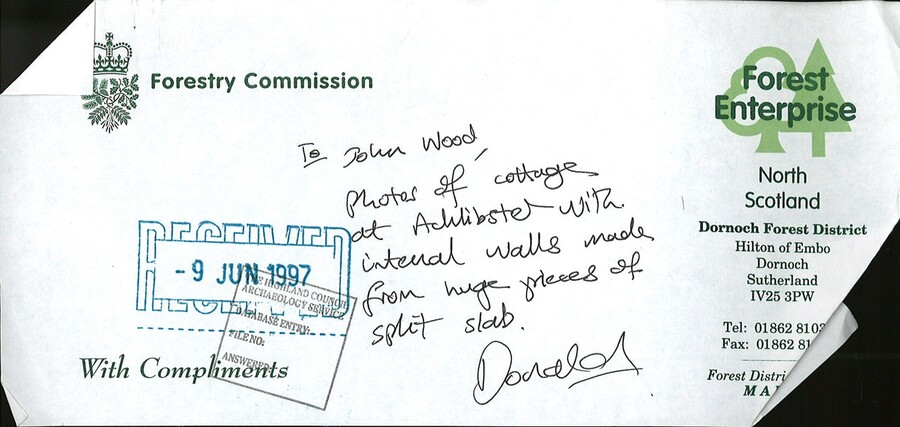 Forestry Commission
To John Wood,
photos of cottage
at Achlibster with
internal walls made
from huge pieces of
split slab.
Donald
RECEIVED
- 9 JUN 1997
RECEIVED
THE HIGHLAND COUNCIL
ARCHAEOLOGY SERVICE
DATABASE ENTRY:
FILE NO:
ANSWERED
With Compliments
Forest
Enterprise
North
Scotland
Dornoch Forest District
Hilton of Embo
Dornoch
Sutherland
IV25 3PW
Tel: 01862 810
Fax: 01862 81
Forest Distri